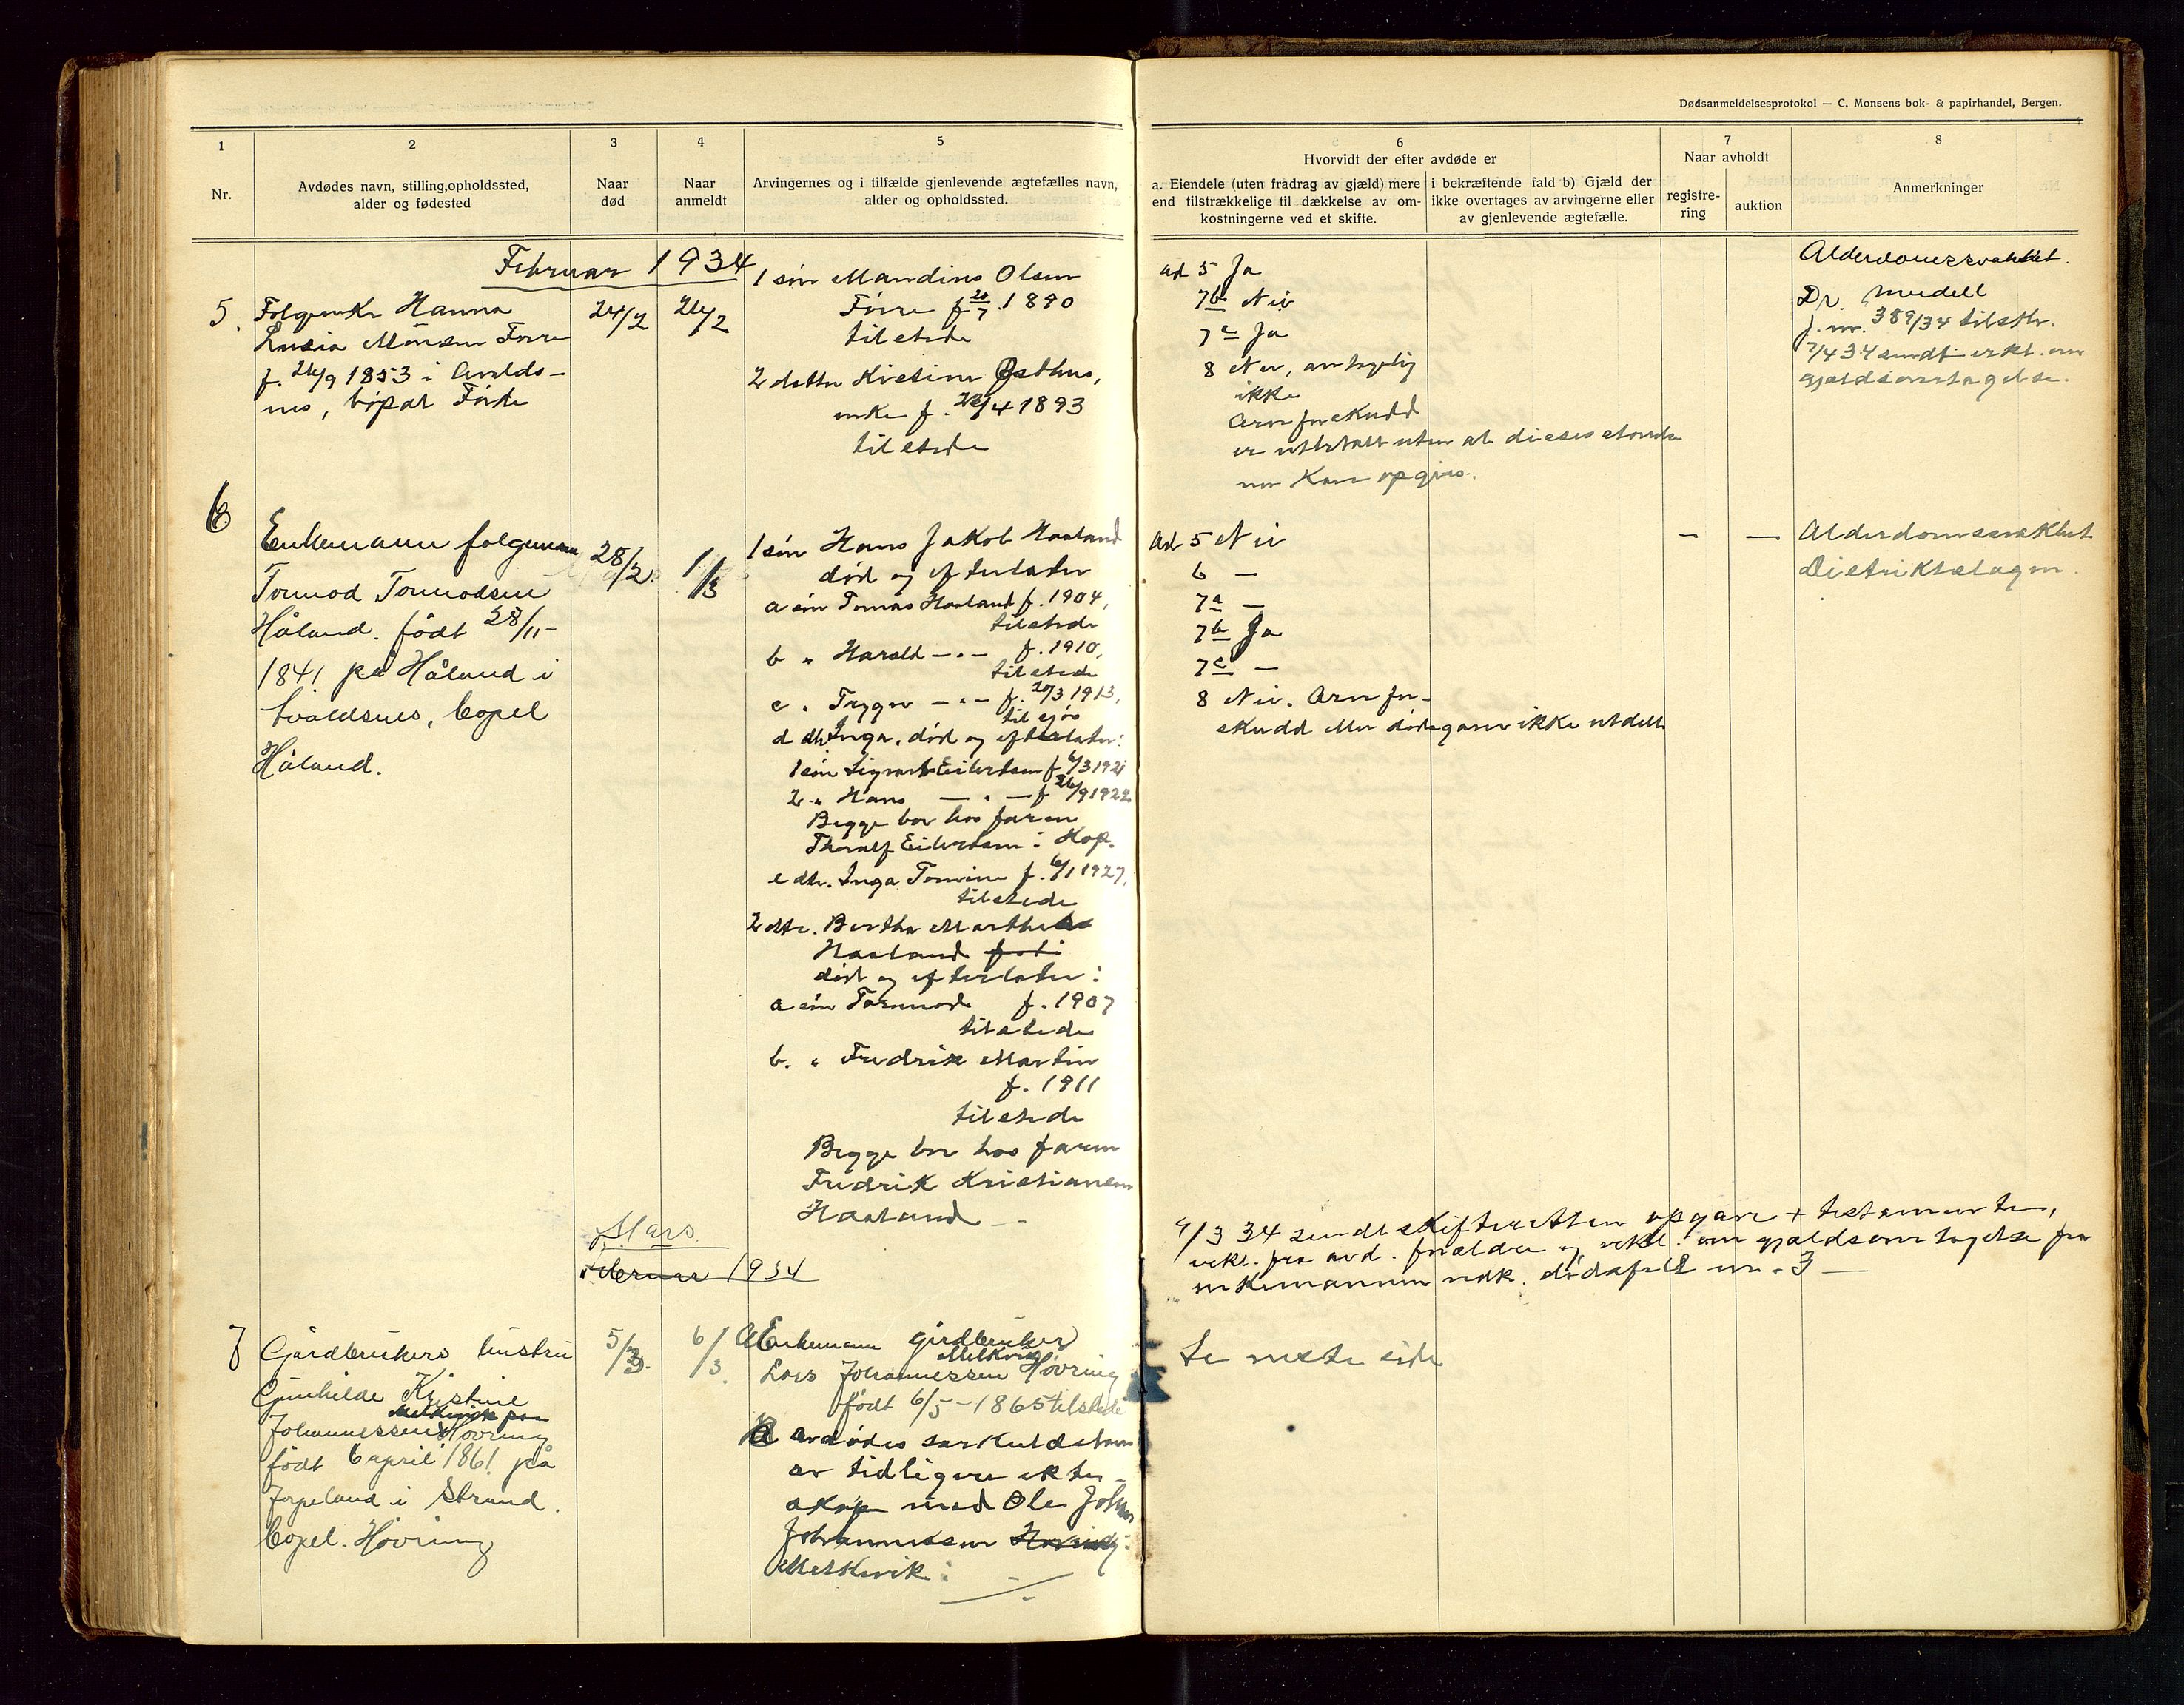 Dødsanmeldelsesprotokol — C. Monsens bok- & papirhandel, Bergen.
1
2
3
4
5
Nr.
Avdødes navn, stilling, opholdssted,
alder og fødested
Naar
død
Naar
anmeldt
Arvingernes og i tilfælde gjenlevende ægtefælles navn,
alder og opholdssted.
6
Hvorvidt der efter avdøde er
a. Eiendele (uten fradrag av gjæld) mere
end tilstrækkelige til dækkelse av om-
kostningerne ved et skifte.
i bekræftende fald b) Gjæld der
ikke overtages av arvingerne eller
av gjenlevende ægtefælle.
7
Naar avholdt
registre-
ring
auktion
8
Anmerkninger
Februar 1934
5.
Folgeenke Hanna
Lusia Monsen Førre
f. 26/9 1853 i Avalds-
nes, bopæl Førre
24/2
26/2
1 søn Mandius Olsen
Førre f 20/7 1890
tilstede
2 datter Kristine Østhus,
enke f. 28/4 1893
tilstede
ad 5 Ja
7b Nei
7c Ja
8 Nei, antagelig
ikke
Arveforskudd
er utbetalt uten at disses størrelse
nu kan opgives.
Alderdomssvakhet.
Dr. Medell
j. nr. 389/34 tilstr.
7/4 34 sendt erkl. om
gjældsovertagelse.
6
Enkemann folgemann
Tormod Tormodsen
Håland. født 28/11-
1841 på Håland i
Avaldsnes, bopel
Håland.
28/2.
1/3
1 søn Hans Jakob Haaland
død og efterlater
a søn Tomas Haaland f. 1904,
tilstede
b " Harald — " — f. 1910,
tilstede
c " Trygve — " — f. 20/3 1913,
til sjøs
d dtr. Inga, død og efterlater:
1 søn Sigvart Eilertsen f 6/3 1921
2 " Hans — " — f 26/9 1922
Begge bor hos faren
Thoralf Eilertsen i Hop.
e dtr. Inga Tomine f. 6/1 1927,
tilstede
2 dtr. Bertha Marthe
Haaland
død og efterlater:
a søn Tormod f. 1907
tilstede
b. " Fredrik Martin
f. 1911
tilstede
Begge bor hos faren
Fredrik Kristiansen
Haaland —
ad 5 Nei
6 —
7a —
7b Ja
7c —
8 Nei. Arvefor-
skudd eller dødsgave ikke utdelt
—
—
Alderdomssvakhet
Distriktslægen.
9/3 34 sendt skifteretten opgave + testamente,
erkl. fra avd. forældre og erkl. om gjældsovertagelse fra
enkemannen vedk. dødsfall nr. 3 —
Mars
Februar 1934
7
Gårdbrukers hustru
Gunhilde Kristine
Melkevik
Johannessen Høvring
født 6 april 1861 på
Jørpeland i Strand.
bopel. Høvring
5/3.
6/3.
A Enkemann gårdbruker
Melkevik
Lars Johannessen Høvring
født 6/5 - 1865 tilstede
B avdødes særkuldsbarn
av tidligere ekte-
skap med Ole Johan
Johannessen Høvring
Melkevik:
Se neste side